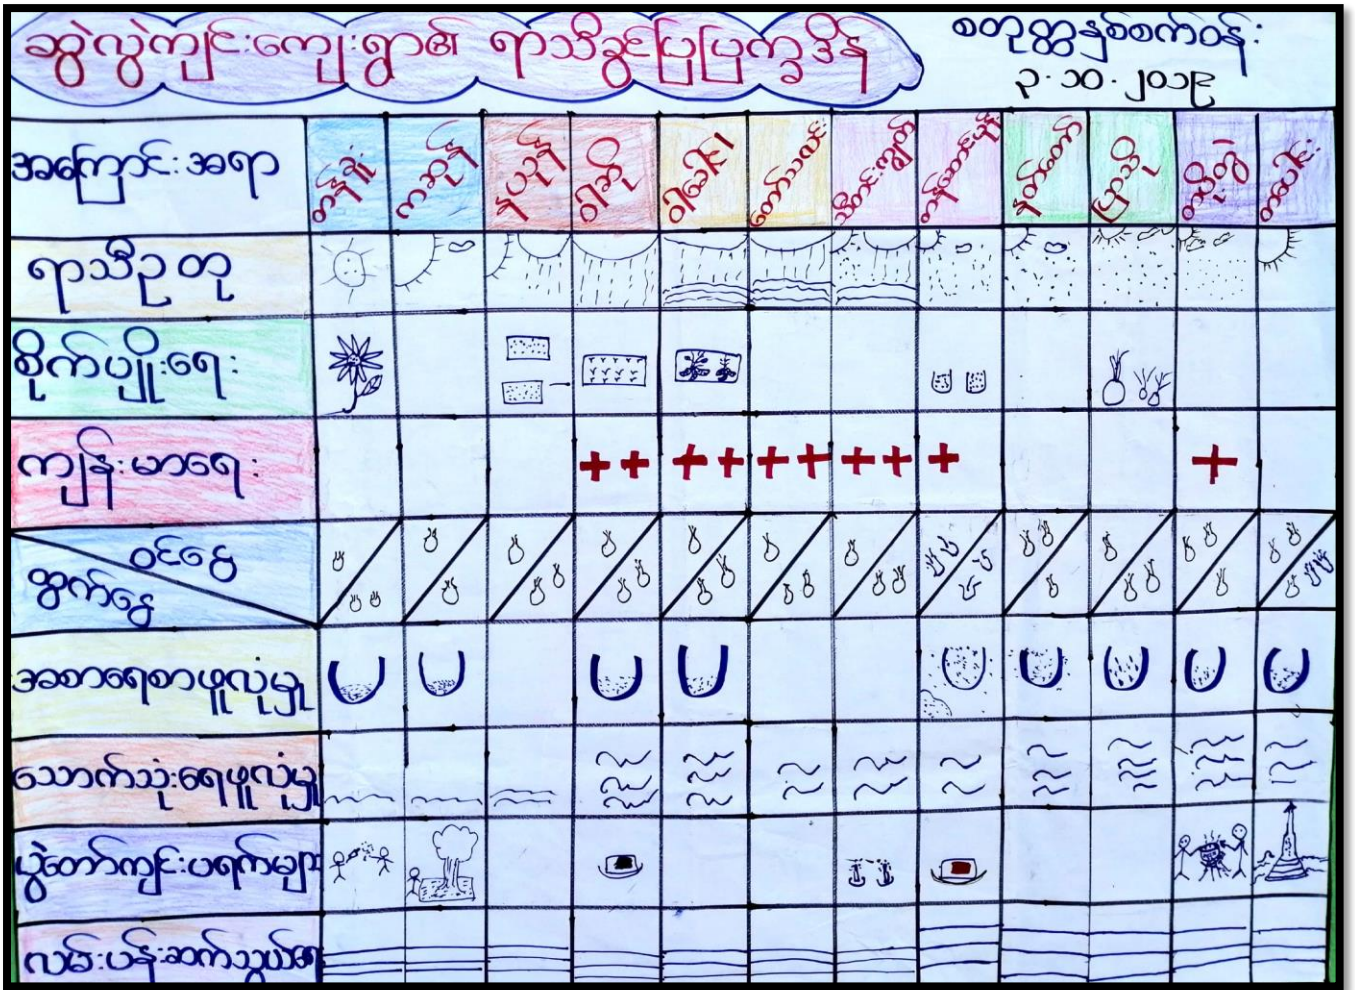 ဆွဲလွဲကျင်းကျေးရွာ၏ ရာသီခွင်ပြပြက္ခဒိန်
စတုတ္ထနှစ်စက်ဝန်း
၃.၁၀.၂၀၁၉
အကြောင်းအရာ တန်ခူး ကဆုန် နယုန် ဝါဆို ဝါခေါင် တော်သလင်း သီတင်းကျွတ် တန်ဆောင်မုန်း နတ်တော် ပြာသို တပို့တွဲ တပေါင်း
ရာသီဥတု
စိုက်ပျိုးရေး
ကျန်းမာရေး
ဝင်ငွေ
ထွက်ငွေ
အစာရေစာဖူလုံမှု
သောက်သုံးရေဖူလုံမှု
ပွဲတော်ကျင်းပရက်များ
လမ်းပန်းဆက်သွယ်ရေး